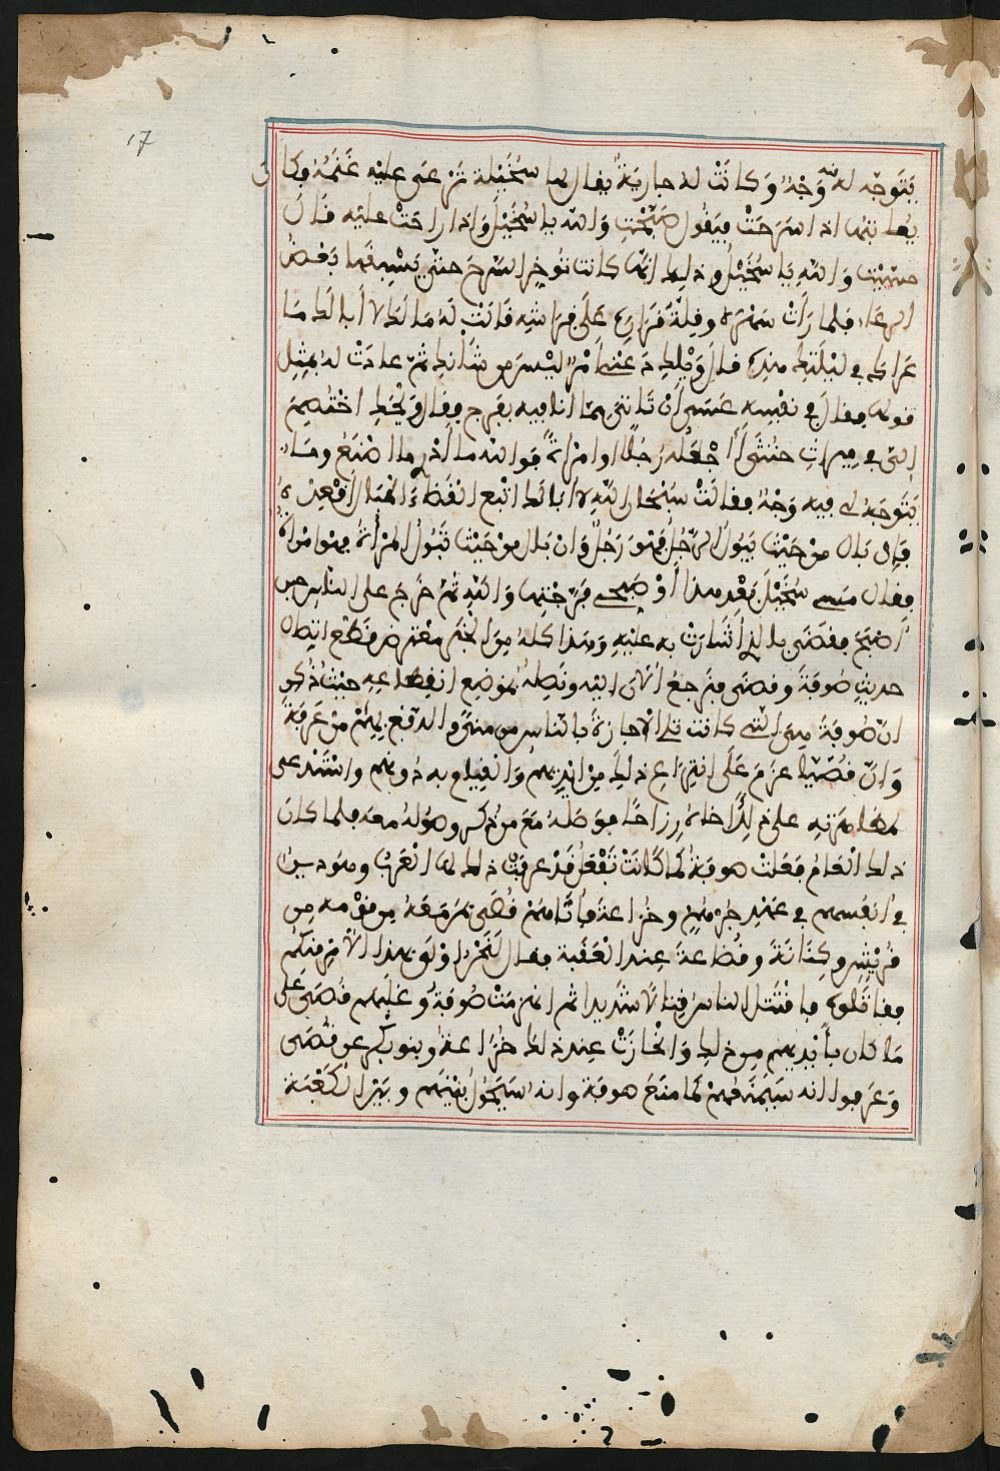 17
يتوجه له منه وجه وكانت له جارية يقال لها سُخَيْلة ترعى عليه غنمه وكان
يعاتبها اذا سرحت فيقول صَبَّحْتِ والله يا سُخَيْل واذا راحت عليه قال
مسّيْتِ والله يا سُخَيْل وذلك انها كانت تؤخر السرح حتى يسبقها بعض
الرعاء فلما رأت سهره وقلة قراره على فراشه قالت له مالك لا أبا لك ما
عراك في ليلتك هذه قال ويلك دعينى أمْر ليس من شأنك ثم عادت له بمثل
قولها فقال في نفسه عسى أن تأتى مما أنا فيه بفرج فقال ويحك اختصم
إلى في ميراث خنثى أأجعله رجلا او امرأة فوالله ما أدرى ما اصنع وما
يتوجه لى فيه وجه فقالت سبحان الله لا أبا لك اتبع القضاء المبال أقعده
فإن بال من حيث يبول الرجل فهو رجل وان بال من حيث تبول المرأة فهو امرأة
فقال مسى سُخَيْل بعد هذا أوْ صبحى فرّجتها والله ثم خرج على الناس حين
أصبح فقضى بالذى أشارت به عليه وهذا كله من الخبر معترض قطع اتصال
حديث صوفة وقصى فنرجع الآن اليه ونصله بموضع انقطاعه حيث ذكر
انّ صوفة هى التى كانت تلى الإجازة بالناس من منى والدفع بهم من عرفة
وانّ قُصَيّا عزم على انتزاع ذلك من ايديهم والقيام به دونهم واستدعى
لمظاهرته على ذلك أخاه رزاحًا فوصله مع من ذكر وصوله معه فلما كان
ذلك العام فعلت صوفة كما كانت تفعل قد عرفت ذلك لها العرب وهو دين
في أنفسهم في عهد جُرْهُم وخزاعة فأتاهم قُصَى بمن معه من قومه من
قريش وكنانة وقضاعة عند العقبة فقال لنحن اولى بهذا الأمر منكم
فقاتلوه فاقتتل الناس قتالا شديدا ثم انهزمت صوفة وغلبهم قصى على
ما كان بأيديهم من ذلك وانحازت عند ذلك خزاعة وبنو بكر عن قصى
وعرفوا انه سيمنعهم كما منع صوفة وانه سيحول بينهم وبين الكعبة